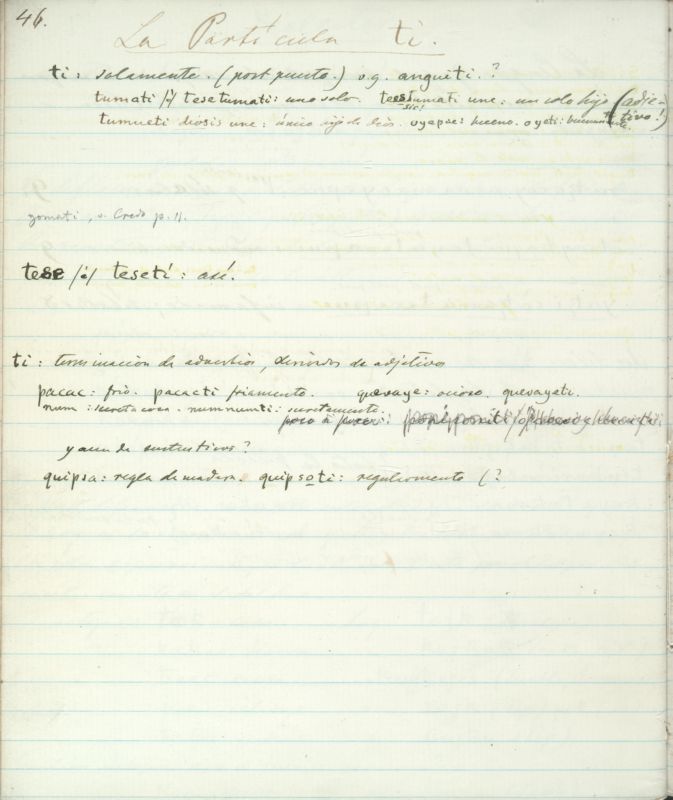 46.
La Partícula ti.
ti: solamente. (post puesto.) v.g. anguiti.?
tumati /é/ tesetumati: uno solo. tesetumati une: un solo hijo (adje-
sic!
tivo!)
tumueti diosis une: único hijo de dios. oyepae: bueno. oyeti: buenamente.
zomati, v. Credo p. 11.
tese /é/ teseti: así.
ti: terminación de adverbios, derivados de adjetivos
pacac: frio. pacacti friamente. quevaye: ocioso. quevayeti.
num: secreta cosa. numnumti: secretamente.
poco à poco:
y aun de sustantivos?
quipsa: regla de madera. quipsoti: reglamente (?